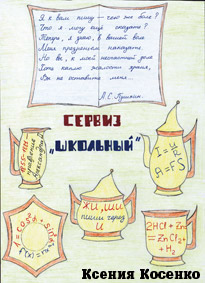 Я к вам пишу – чего же боле?
Что я могу ещё сказать?
Теперь, я знаю, в вашей воле
Меня презреньем наказать.
Но вы, к моей несчастной доле
Хоть каплю жалости храня,
Вы не оставите меня...
А.С. Пушкин.
СЕРВИЗ
„ШКОЛЬНЫЙ"
ЖИ, ШИ
пиши через
И
2HCl + Zn
= ZnCl₂ +
+ H₂
Ксения Косенко